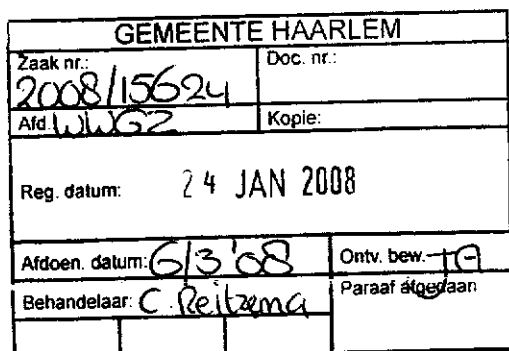 GEMEENTE HAARLEM
Zaak nr.: Doc. nr.:
2008/15624
Afd. WWGZ Kopie:
Reg. datum: 24 JAN 2008
Afdoen. datum: 6/3 '08 Ontv. bew.
Behandelaar: C. Reitzema Paraaf afgedaan